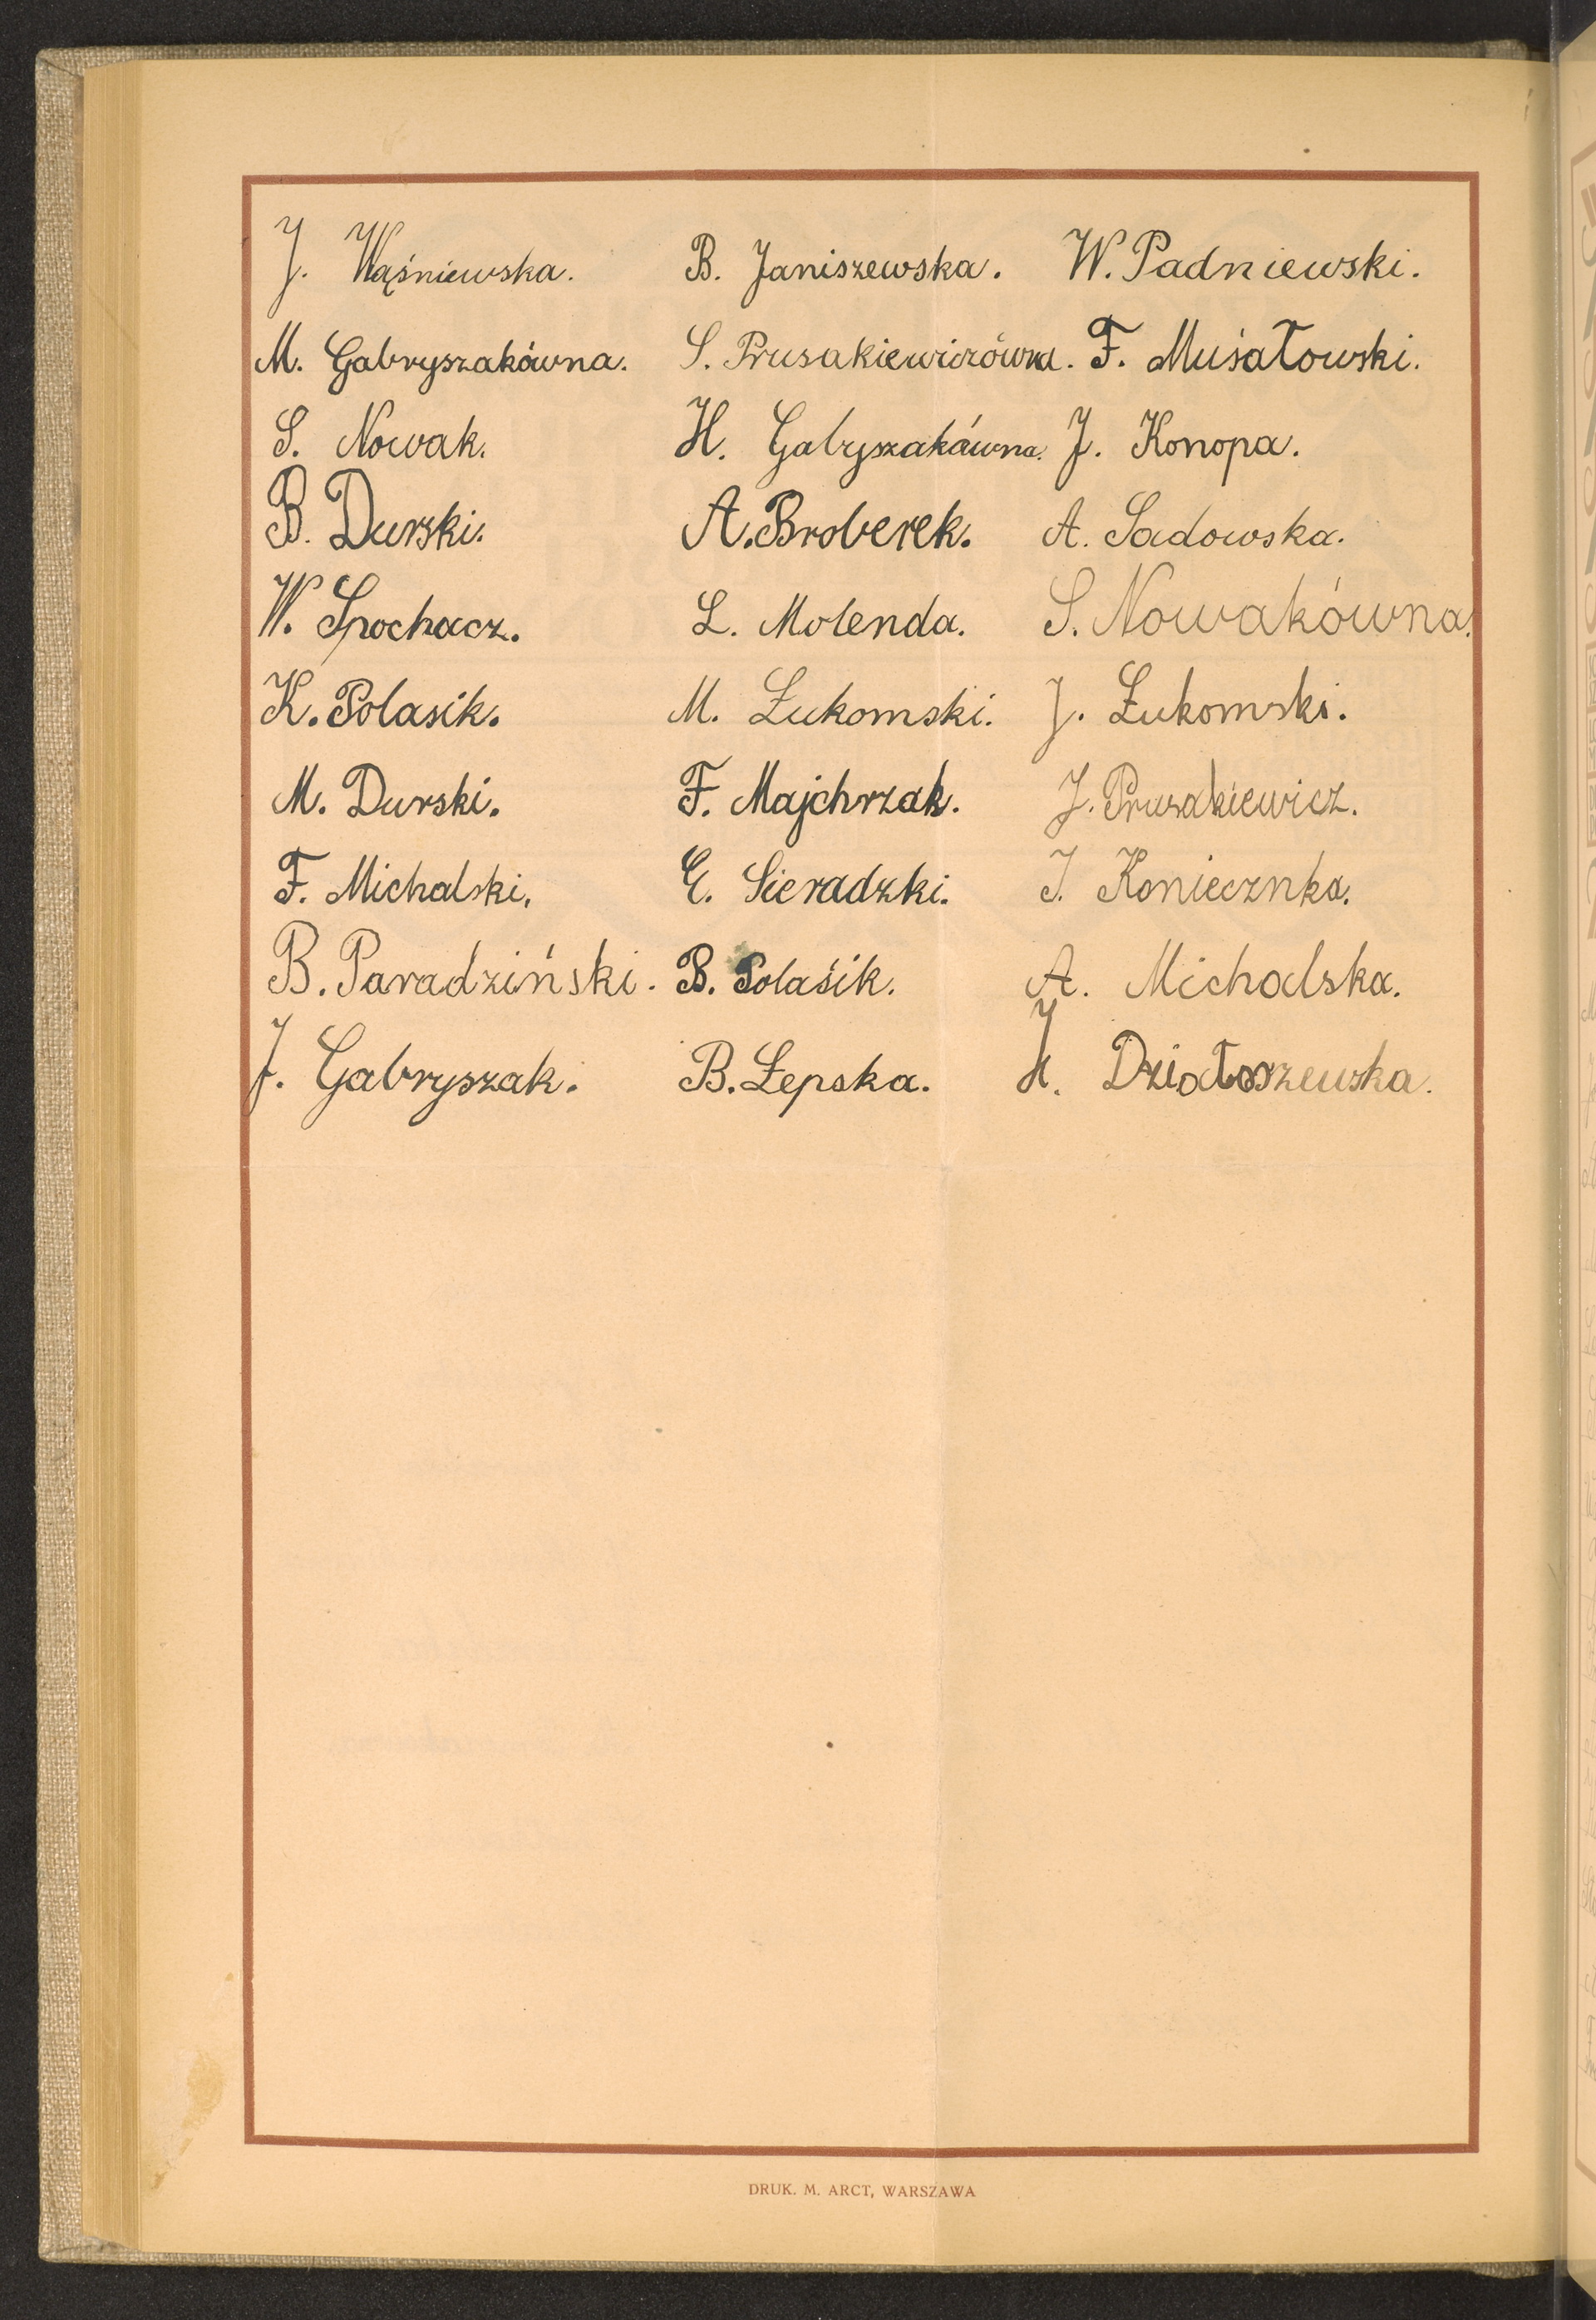 J. Waśniewska. B. Janiszewska. W. Padniewski.
M. Gabryszakówna. S. Prusakiewiczówna. F. Musiałowski.
S. Nowak. H. Gabryszakówna. J. Konopa.
B. Durski. A. Broberek. A. Sadowska.
W. Spochacz. L. Molenda. S. Nowakówna.
K. Polasik. M. Łukomski. J. Łukomski.
M. Durski. F. Majchrzak. J. Prusakiewicz.
F. Michalski. E. Sieradzki. J. Koniecznka.
B. Paradziński. B. Polaśik. A. Michalska.
J. Gabryszak. B. Łepska. H. Działoszewska.
DRUK. M. ARCT, WARSZAWA